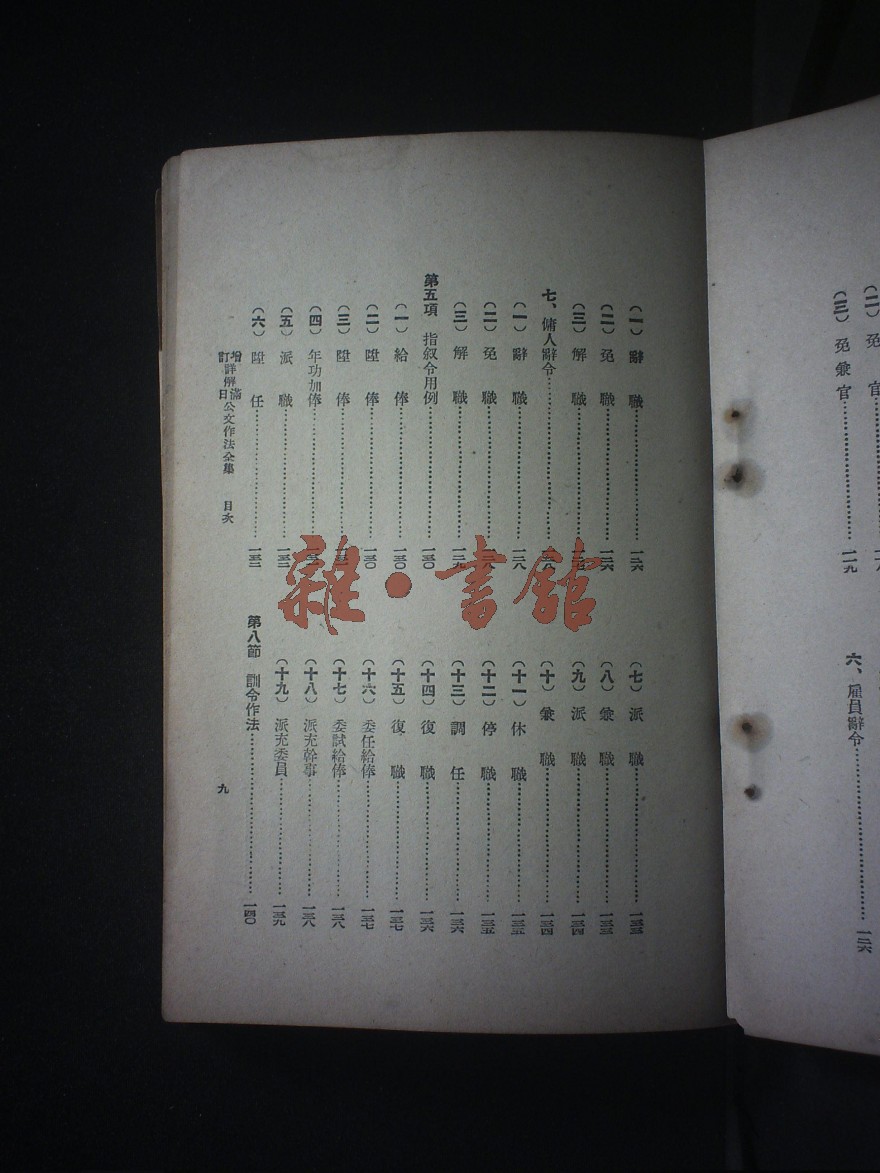 (二)免官
(三)免兼官……一一九
六、雇員辭令……一二六
(一)辭職……一二六
(二)免職……一二六
(三)解職……
七、傭人辭令……
(一)辭職……一二八
(二)免職……一二八
(三)解職……一二九
第五項 指叙令用例……一三〇
(一)給俸……一三〇
(二)陞俸……一三〇
(三)陞俸……
(四)年功加俸……
(五)派職……一三二
(六)陞任……一三二
(七)派職……一三三
(八)兼職……一三三
(九)派職……一三四
(十)兼職……一三四
(十一)休職……一三五
(十二)停職……一三五
(十三)調任……一三六
(十四)復職……一三六
(十五)復職……一三七
(十六)委任給俸……一三七
(十七)委試給俸……一三八
(十八)派充幹事……一三八
(十九)派充委員……一三九
第八節 訓令作法……一四〇
增訂詳解滿日公文作法全集 目次 九
雜·書館